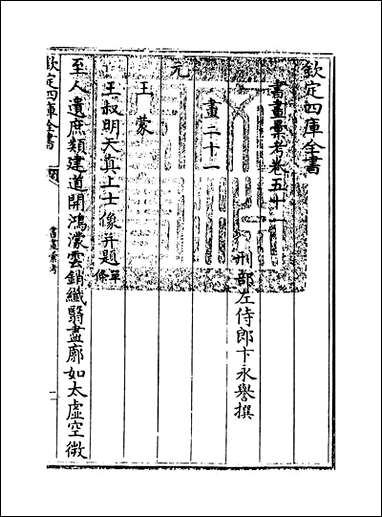 欽定四庫全書
書畫彙考卷五十一
刑部左侍郎卞永譽撰
畫二十一
元
王蒙
王叔明天真上士像并題 單條
至人遺庶類建道開鴻濛雲銷纖翳盡廓如太虛空微
欽定四庫全書
書畫彙考